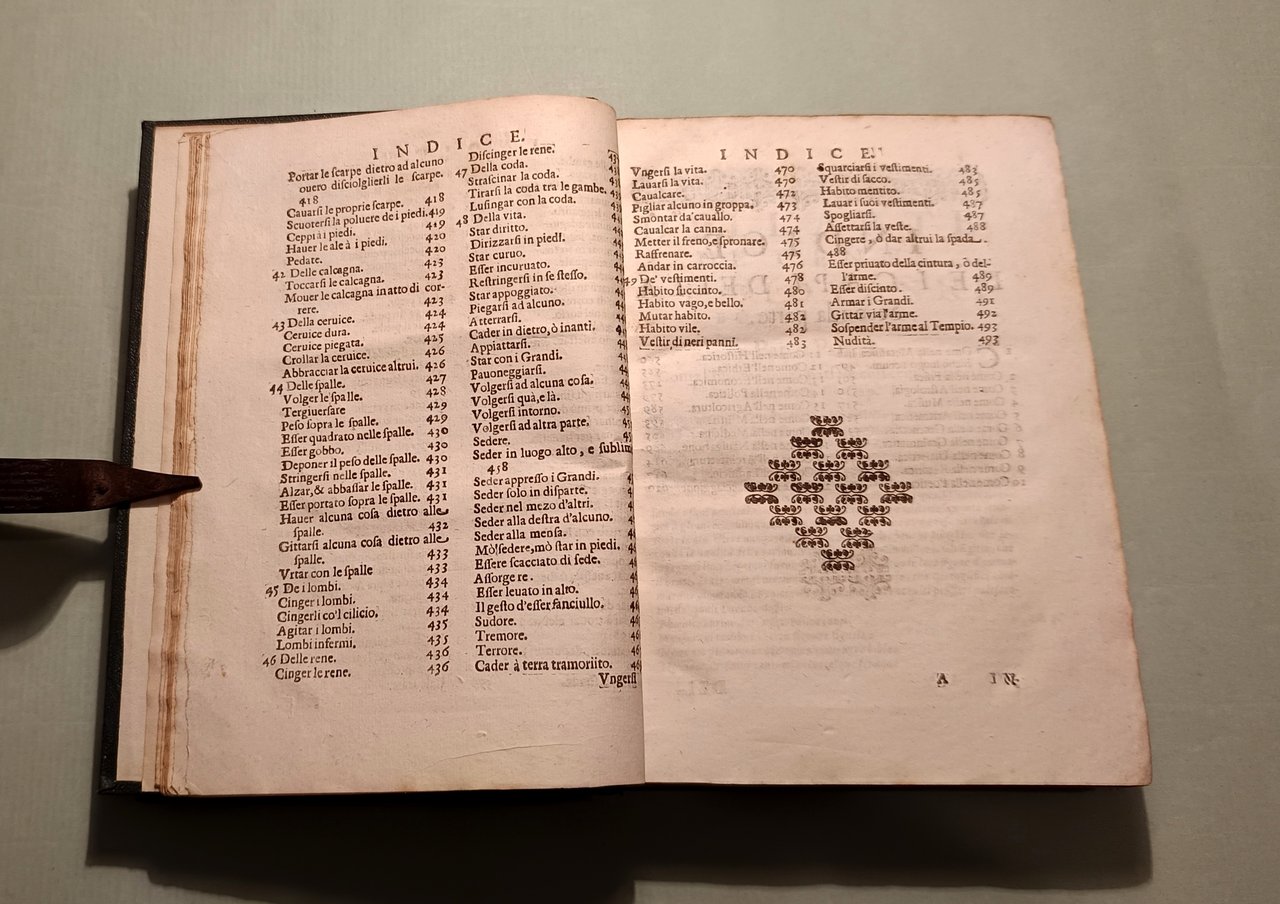 INDICE.
Portar le ſcarpe dietro ad alcuno
ouero diſciolglierli le ſcarpe.
418
Cauarſi le proprie ſcarpe. 418
Scuoterſi la poluere de i piedi. 419
Ceppi à i piedi. 419
Hauer le ale à i piedi. 420
Pedate. 420
42 Delle calcagna. 423
Toccarſi le calcagna. 423
Mouer le calcagna in atto di cor-
rere. 423
43 Della ceruice. 424
Ceruice dura. 424
Ceruice piegata. 425
Crollar la ceruice. 426
Abbracciar la ceruice altrui. 426
44 Delle ſpalle. 427
Volger le ſpalle. 428
Tergiuerſare 429
Peſo ſopra le ſpalle. 429
Eſſer quadrato nelle ſpalle. 430
Eſſer gobbo. 430
Deponer il peſo delle ſpalle. 430
Stringerſi nelle ſpalle. 431
Alzar, & abbaſſar le ſpalle. 431
Eſſer portato ſopra le ſpalle. 431
Hauer alcuna coſa dietro alle
ſpalle. 432
Gittarſi alcuna coſa dietro alle
ſpalle. 433
Vrtar con le ſpalle 433
45 De i lombi. 434
Cinger i lombi. 434
Cingerli co'l cilicio. 434
Agitar i lombi. 435
Lombi infermi. 435
46 Delle rene. 436
Cinger le rene. 436
Diſcinger le rene.
47 Della coda.
Straſcinar la coda.
Tirarſi la coda tra le gambe.
Luſingar con la coda.
48 Della vita.
Star diritto.
Dirizzarſi in piedi.
Star curuo.
Eſſer incuruato.
Reſtringerſi in ſe ſteſſo.
Star appoggiato.
Piegarſi ad alcuno.
Atterrarſi.
Cader in dietro, ò inanti.
Appiattarſi.
Star con i Grandi.
Pauoneggiarſi.
Volgerſi ad alcuna coſa.
Volgerſi quà, e là.
Volgerſi intorno.
Volgerſi ad altra parte.
Sedere.
Seder in luogo alto, e ſublim
458
Seder appreſſo i Grandi.
Seder ſolo in diſparte.
Seder nel mezo d'altri.
Seder alla deſtra d'alcuno.
Seder alla menſa.
Mò ſedere, mò ſtar in piedi.
Eſſere ſcacciato di ſede.
Aſſorgere.
Eſſer leuato in alto.
Il geſto d'eſſer fanciullo.
Sudore.
Tremore.
Terrore.
Cader à terra tramoriito.
Vngerſi
INDICE.
Vngerſi la vita. 470
Lauarſi la vita. 470
Caualcare. 472
Pigliar alcuno in groppa. 473
Smontar da' cauallo. 474
Caualcar la canna. 474
Metter il freno, e ſpronare. 475
Raffrenare. 475
Andar in carroccia. 476
49 De' veſtimenti. 478
Habito ſuccinto. 480
Habito vago, e bello. 481
Mutar habito. 482
Habito vile. 482
Veſtir di neri panni. 483
Squarciarſi i veſtimenti. 483
Veſtir di ſacco. 485
Habito mentito. 485
Lauar i ſuoi veſtimenti. 487
Spogliarſi. 487
Aſſettarſi la veſte. 488
Cingere, ò dar altrui la ſpada.
488
Eſſer priuato della cintura, ò del-
l'arme. 489
Eſſer diſcinto. 489
Armar i Grandi. 491
Gittar via l'arme. 492
Soſpender l'arme al Tempio. 493
Nudità. 493